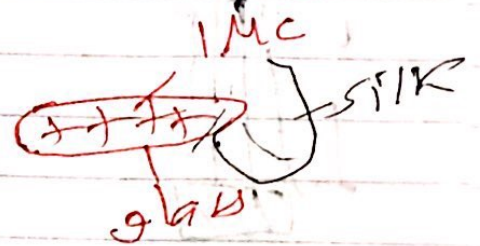 1 MC
silk
+ + + +
glass